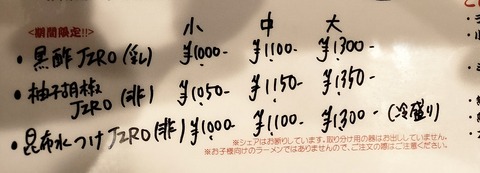 <期間限定!!> 小 中 大
・黒酢JZRO(乳) ¥1000- ¥1100- ¥1300-
・柚子胡椒
JZRO(非) ¥1050- ¥1150- ¥1350-
・昆布水つけJZRO(非) ¥1000- ¥1100- ¥1300-(冷盛り)
※シェアはお断りしています。取り分け用の器はお出ししていません。
※お子様向けのラーメンではありませんので、ご注文の際はご注意ください。